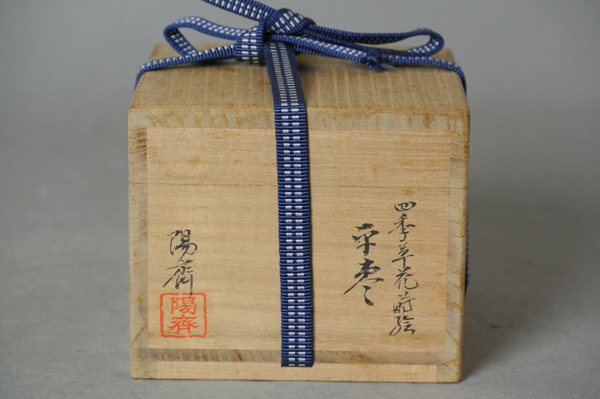 四季草花蒔絵
平棗
陽齊
陽齊